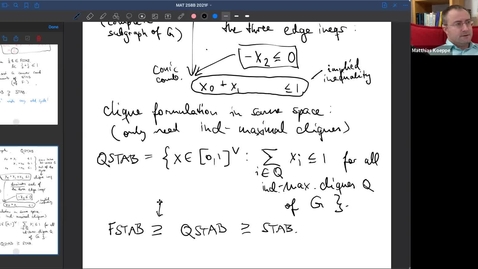 MAT 208B 2021F
(comple
subgraph of G)
the three edge ineqs:
Conic
comb.
-x₂ ≤ 0
x₀ + x₁ ≤ 1
implied
inequality
clique formulation in same space:
(only need incl-maximal cliques)
QSTAB = {x ∈ [0,1]^V : ∑_{i∈Q} x_i ≤ 1 for all
incl-max. cliques Q
of G }.
FSTAB ⊇ QSTAB ⊇ STAB.
Matthias Koeppe